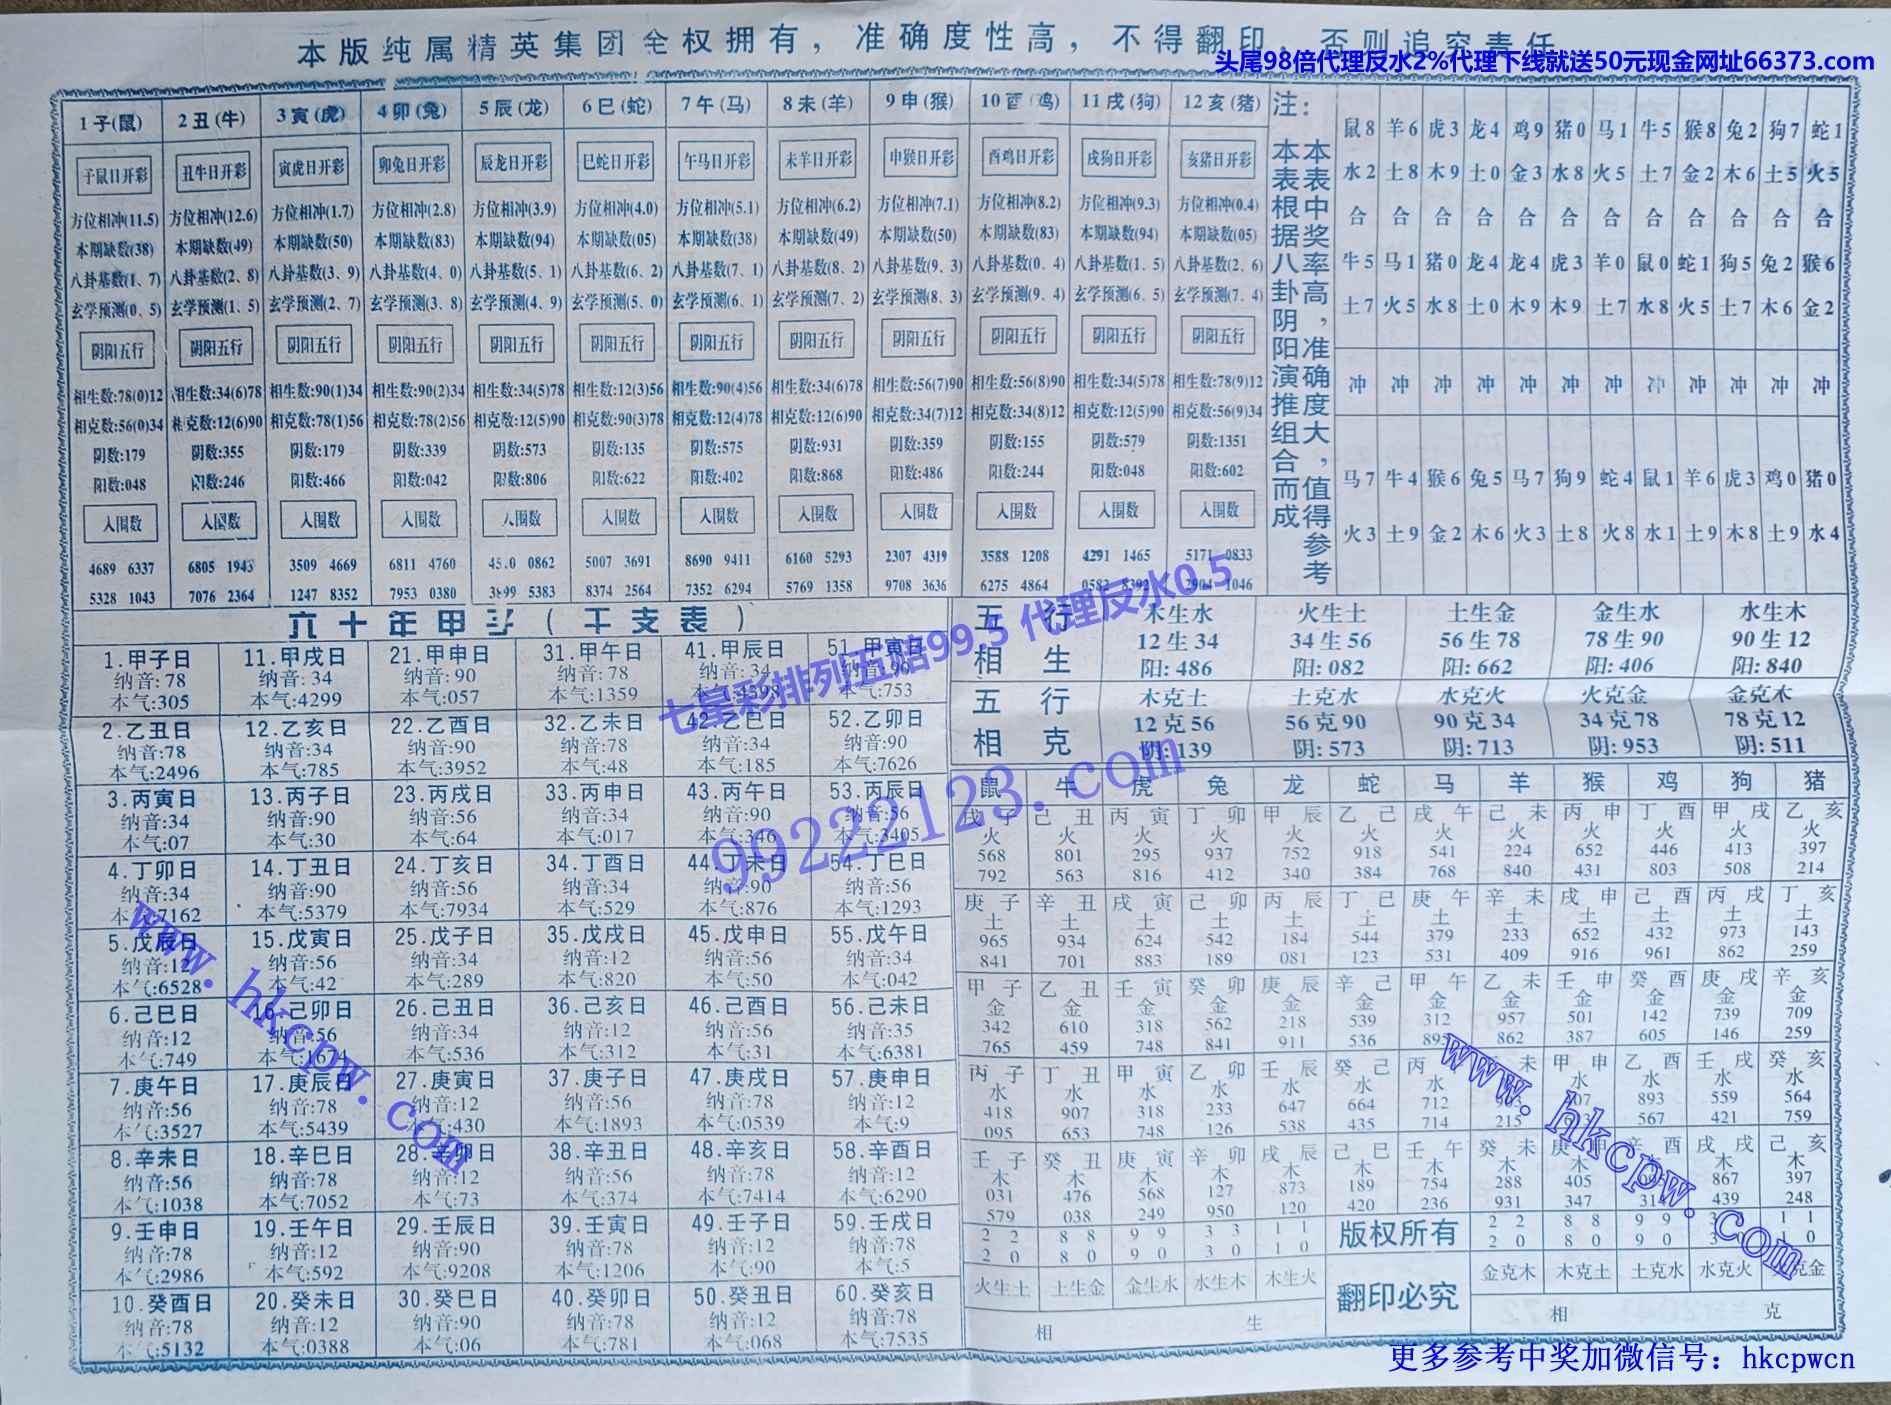 本版纯属精英集团全权拥有，准确度性高，不得翻印，否则追究责任
头尾98倍代理反水2%代理下线就送50元现金网址66373.com
1子(鼠) 2丑(牛) 3寅(虎) 4卯(兔) 5辰(龙) 6巳(蛇) 7午(马) 8未(羊) 9申(猴) 10酉(鸡) 11戌(狗) 12亥(猪)
子鼠日开彩 丑牛日开彩 寅虎日开彩 卯兔日开彩 辰龙日开彩 巳蛇日开彩 午马日开彩 未羊日开彩 申猴日开彩 酉鸡日开彩 戌狗日开彩 亥猪日开彩
方位相冲(11.5) 方位相冲(12.6) 方位相冲(1.7) 方位相冲(2.8) 方位相冲(3.9) 方位相冲(4.0) 方位相冲(5.1) 方位相冲(6.2) 方位相冲(7.1) 方位相冲(8.2) 方位相冲(9.3) 方位相冲(0.4)
本期缺数(38) 本期缺数(49) 本期缺数(50) 本期缺数(83) 本期缺数(94) 本期缺数(05) 本期缺数(38) 本期缺数(49) 本期缺数(50) 本期缺数(83) 本期缺数(94) 本期缺数(05)
八卦基数(1、7) 八卦基数(2、8) 八卦基数(3、9) 八卦基数(4、0) 八卦基数(5、1) 八卦基数(6、2) 八卦基数(7、1) 八卦基数(8、2) 八卦基数(9、3) 八卦基数(0、4) 八卦基数(1、5) 八卦基数(2、6)
玄学预测(0、5) 玄学预测(1、5) 玄学预测(2、7) 玄学预测(3、8) 玄学预测(4、9) 玄学预测(5、0) 玄学预测(6、1) 玄学预测(7、2) 玄学预测(8、3) 玄学预测(9、4) 玄学预测(6、5) 玄学预测(7、4)
阴阳五行 阴阳五行 阴阳五行 阴阳五行 阴阳五行 阴阳五行 阴阳五行 阴阳五行 阴阳五行 阴阳五行 阴阳五行 阴阳五行
相生数:78(0)12 相生数:34(6)78 相生数:90(1)34 相生数:90(2)34 相生数:34(5)78 相生数:12(3)56 相生数:90(4)56 相生数:34(6)78 相生数:56(7)90 相生数:56(8)90 相生数:34(5)78 相生数:78(9)12
相克数:56(0)34 相克数:12(6)90 相克数:78(1)56 相克数:78(2)56 相克数:12(5)90 相克数:90(3)78 相克数:12(4)78 相克数:12(6)90 相克数:34(7)12 相克数:34(8)12 相克数:12(5)90 相克数:56(9)34
阴数:179 阴数:355 阴数:179 阴数:339 阴数:573 阴数:135 阴数:575 阴数:931 阴数:359 阴数:155 阴数:579 阴数:1351
阳数:048 阳数:246 阳数:466 阳数:042 阳数:806 阳数:622 阳数:402 阳数:868 阳数:486 阳数:244 阳数:048 阳数:602
入围数 入围数 入围数 入围数 入围数 入围数 入围数 入围数 入围数 入围数 入围数 入围数
4689 6337 6805 1943 3509 4669 6811 4760 0862 5007 3691 8690 9411 6160 5293 2307 4319 3588 1208 4291 1465 5171 0833
5328 1043 7076 2364 1247 8352 7953 0380 3899 5383 8374 2564 7352 6294 5769 1358 9708 3636 6275 4864 0582 8392 2904 1046
注：
本表根据八卦阴阳演推组合而成
本表中奖率高，准确度大，值得参考
鼠8 羊6 虎3 龙4 鸡9 猪0 马1 牛5 猴8 兔2 狗7 蛇1
水2 土8 木9 土0 金3 水8 火5 土7 金2 木6 土5 火5
合 合 合 合 合 合 合 合 合 合 合 合
牛5 马1 猪0 龙4 龙4 虎3 羊0 鼠0 蛇1 狗5 兔2 猴6
土7 火5 水8 土0 木9 木9 土7 水8 火5 土7 木6 金2
冲 冲 冲 冲 冲 冲 冲 冲 冲 冲 冲 冲
马7 牛4 猴6 兔5 马7 狗9 蛇4 鼠1 羊6 虎3 鸡0 猪0
火3 土9 金2 木6 火3 土8 火8 水1 土9 木8 土9 水4
六十年甲子(干支表)
1.甲子日 11.甲戌日 21.甲申日 31.甲午日 41.甲辰日 51.甲寅日
纳音:78 纳音:34 纳音:90 纳音:78 纳音:34 纳音:90
本气:305 本气:4299 本气:057 本气:1359 本气:4398 本气:753
2.乙丑日 12.乙亥日 22.乙酉日 32.乙未日 42.乙巳日 52.乙卯日
纳音:78 纳音:34 纳音:90 纳音:78 纳音:34 纳音:90
本气:2496 本气:785 本气:3952 本气:48 本气:185 本气:7626
3.丙寅日 13.丙子日 23.丙戌日 33.丙申日 43.丙午日 53.丙辰日
纳音:34 纳音:90 纳音:56 纳音:34 纳音:90 纳音:56
本气:07 本气:30 本气:64 本气:017 本气:346 本气:3405
4.丁卯日 14.丁丑日 24.丁亥日 34.丁酉日 44.丁未日 54.丁巳日
纳音:34 纳音:90 纳音:56 纳音:34 纳音:90 纳音:56
本气:7162 本气:5379 本气:7934 本气:529 本气:876 本气:1293
5.戊辰日 15.戊寅日 25.戊子日 35.戊戌日 45.戊申日 55.戊午日
纳音:12 纳音:56 纳音:34 纳音:12 纳音:56 纳音:34
本气:6528 本气:42 本气:289 本气:820 本气:50 本气:042
6.己巳日 16.己卯日 26.己丑日 36.己亥日 46.己酉日 56.己未日
纳音:12 纳音:56 纳音:34 纳音:12 纳音:56 纳音:35
本气:749 本气:1674 本气:536 本气:312 本气:31 本气:6381
7.庚午日 17.庚辰日 27.庚寅日 37.庚子日 47.庚戌日 57.庚申日
纳音:56 纳音:78 纳音:12 纳音:56 纳音:78 纳音:12
本气:3527 本气:5439 本气:430 本气:1893 本气:0539 本气:9
8.辛未日 18.辛巳日 28.辛卯日 38.辛丑日 48.辛亥日 58.辛酉日
纳音:56 纳音:78 纳音:12 纳音:56 纳音:78 纳音:12
本气:1038 本气:7052 本气:73 本气:374 本气:7414 本气:6290
9.壬申日 19.壬午日 29.壬辰日 39.壬寅日 49.壬子日 59.壬戌日
纳音:78 纳音:12 纳音:90 纳音:78 纳音:12 纳音:78
本气:2986 本气:592 本气:9208 本气:1206 本气:90 本气:5
10.癸酉日 20.癸未日 30.癸巳日 40.癸卯日 50.癸丑日 60.癸亥日
纳音:78 纳音:12 纳音:90 纳音:78 纳音:12 纳音:78
本气:5132 本气:0388 本气:06 本气:781 本气:068 本气:7535
五行相生
木生水 火生土 土生金 金生水 水生木
12生34 34生56 56生78 78生90 90生12
阳:486 阳:082 阳:662 阳:406 阳:840
五行相克
木克土 土克水 水克火 火克金 金克木
12克56 56克90 90克34 34克78 78克12
阴:139 阴:573 阴:713 阴:953 阴:511
鼠 牛 虎 兔 龙 蛇 马 羊 猴 鸡 狗 猪
戊子 己丑 丙寅 丁卯 甲辰 乙己 戌午 己未 丙申 丁酉 甲戌 乙亥
火 火 火 火 火 火 火 火 火 火 火 火
568 801 295 937 752 918 541 224 652 446 413 397
792 563 816 412 340 384 768 840 431 803 508 214
庚子 辛丑 戊寅 己卯 丙辰 丁巳 庚午 辛未 戌申 己酉 丙戌 丁亥
土 土 土 土 土 土 土 土 土 土 土 土
965 934 624 542 184 544 379 233 652 432 973 143
841 701 883 189 081 123 531 409 916 961 862 259
甲子 乙丑 壬寅 癸卯 庚辰 辛己 甲午 乙未 壬申 癸酉 庚戌 辛亥
金 金 金 金 金 金 金 金 金 金 金 金
342 610 318 562 218 539 312 957 501 142 739 709
765 459 748 841 911 536 862 387 605 146 259
丙子 丁丑 甲寅 乙卯 壬辰 癸己 丙 未 甲申 乙酉 壬戌 癸亥
水 水 水 水 水 水 水 水 水 水 水
418 907 318 233 647 664 712 893 559 564
095 653 748 126 538 435 714 215 567 421 759
壬子 癸丑 庚寅 辛卯 戌辰 己巳 壬午 癸未 庚申 辛酉 戌戌 己亥
木 木 木 木 木 木 木 木 木 木 木
031 476 568 127 873 189 754 288 405 867 397
579 038 249 950 120 420 236 931 347 439 248
2 2 8 8 9 9 3 3 1 1 版权所有 2 2 8 8 9 9 3 1 1
2 0 8 0 9 0 3 0 1 0 2 0 8 0 9 0 3 0
火生土 土生金 金生水 水生木 木生火 翻印必究 金克木 木克土 土克水 水克火 火克金
相 生 相 克
七星彩排列五赔99.5 代理反水0.5
99222123.com
www.hkcpw.com
www.hkcpw.com
更多参考中奖加微信号：hkcpwcn